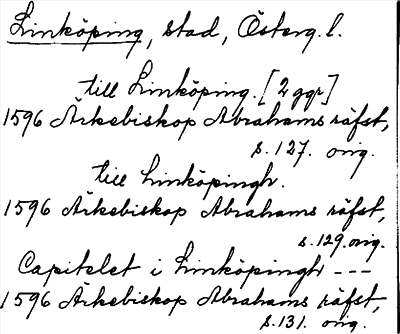 Linköping, stad, Österg. l.
till Linköping. [2 ggr]
1596 Ärkebiskop Abrahams räfst,
s. 127. orig.
till Linköpingh.
1596 Ärkebiskop Abrahams räfst,
s. 129. orig.
Capitelet i Linköpingh ---
1596 Ärkebiskop Abrahams räfst,
s. 131. orig.